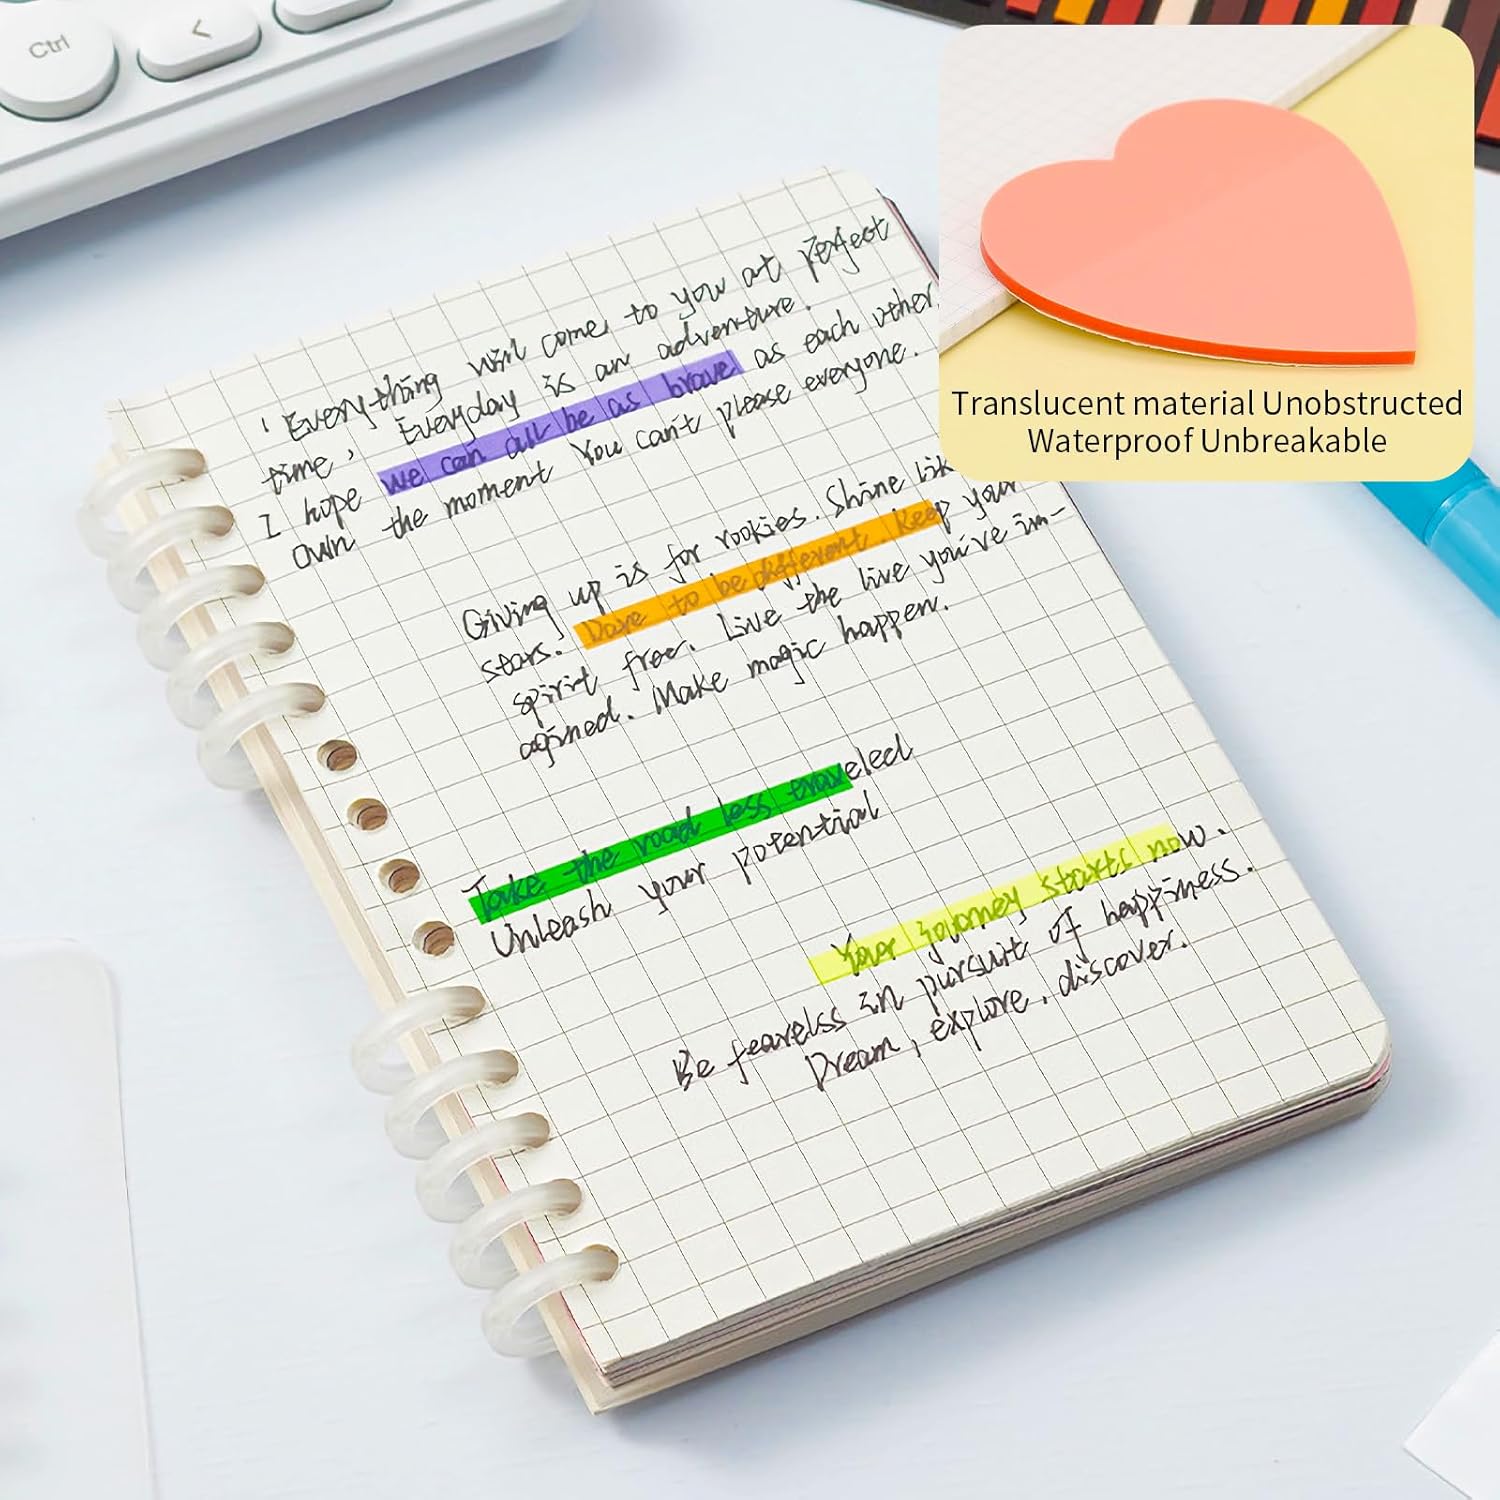 Ctrl
<
Translucent material Unobstructed
Waterproof Unbreakable
'Everything will come to you at perfect
time, Everyday is an adventure.
I hope we can all be as brave as each other.
Own the moment You can't please everyone.
Giving up is for rookies. Shine lik
stars. Dare to be different. Keep your
spirit free. Live the live you've im-
agined. Make magic happen.
Take the road less traveled
Unleash your potential
Your journey starts now.
Be fearelss in pursuit of happiness.
Dream, explore, discover.